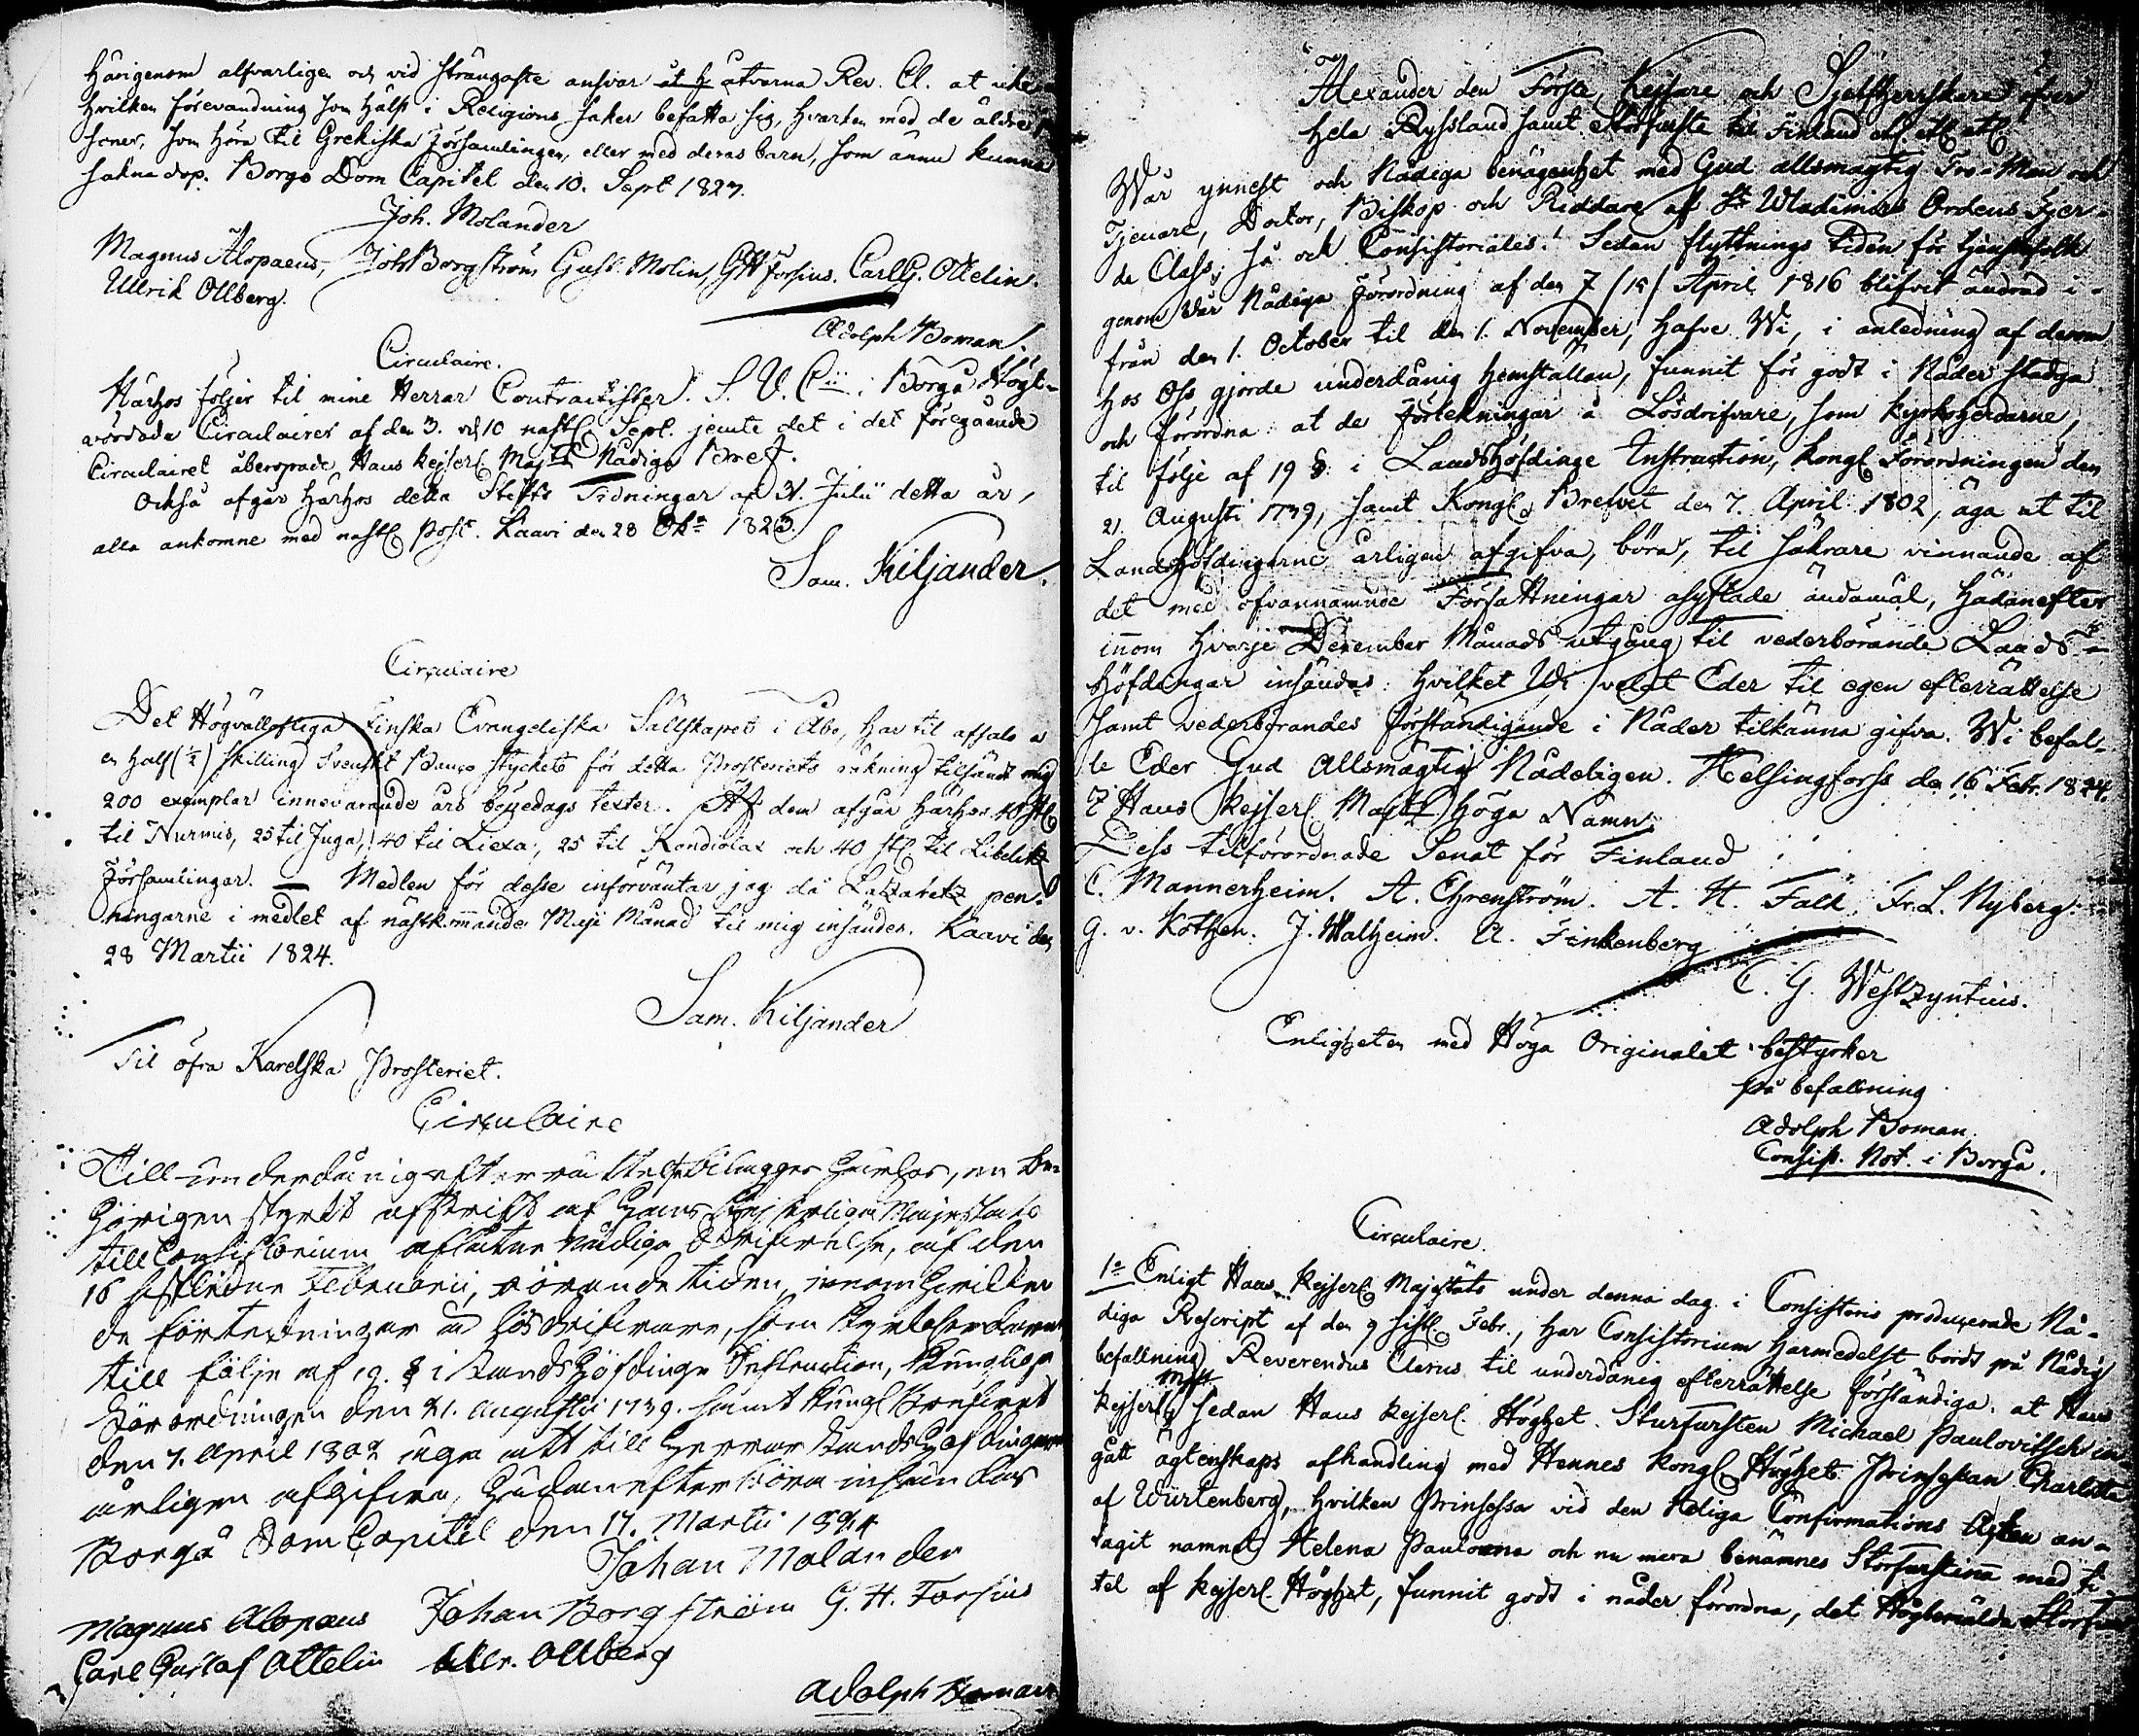 Härigenom alfvarligen och vid strängaste answar åt h åtvarna Rev. Cl. at icke
hvilken förevändning som hälst i Religions saker befatta sig, hvarken med de äldre per
soner, som höra til Grekiska Församlingen, eller med deras barn, som ännu kunna
sakna dop. Borgo Dom Capitel den 10. Sept 1823.
Joh. Molander
Magnus Alopaeus, Joh Borgström Gust. Molin, G H Forsius. Carl G. Ottelin.
Ullrik Ollberg.
Adolph Boman.
Circulaire.
Härhos följer til mine Herrar Contractister. S. V. Cii i Borgå Högt-
vördade Circulairer af den 3. och 10 nästl. Sept. jemte det i det föregående
Circulairet åberopade Hans Kejserl. Majts Nådiga Bref.
Också afgår härhos detta Stifts Tidningar af 31. Julii detta år,
alla ankomne med nästl. post. Kaavi den 28 Okr 1823.
Sam. Kiljander.
Circulaire
Det Högvällofliga Finska Evangeliska Sällskapet i Åbo, har til afsalu a
en half (½) skilling Svenskt Banco stycket för detta Prosteriets räkning tillsändt mig
200 exemplar innevarande års bönedags texter. Af dem afgår härhos 40 st.
til Nurmis, 25 til Juga, 40 til Liexa, 25 til Kondiolax och 40 st. til Libelitz
Församlingar. — Medlen för desse inforväntar jag då Lazaretz pen-
ningarne i medlet af nästkommande Maji Månad til mig insändes. Kaavi den
28 Martii 1824.
Sam. Kiljander
Til öfra Karelska Prosteriet.
Circulaire
Till underdånig efterrättelse bilägges härhos, en be-
hörigen styrkt afskrift af Hans Kejserliga Majestäts
till Consistorium aflåtne Nådiga Skrifvelse, af den
16 sistledne Februarii, rörande tiden, innom hvilken
de förtekningar å Lösdrifvare, som Kyrkoherdarne
till följe af 19. § i Landshöfdinge Instruction, Kungliga
Förordningen den 21. Augusti 1739. samt Kungl Brefvet
den 7. April 1802 äga att till Herrar Landshöfdingarne
årligen afgifva, hädanefter böra insändas
Borgå Dom Capitel den 17. Martii 1824
Johan Molander
Magnus Alopaeus Johan Borgström G. H. Forsius
Carl Gustaf Ottelin Ullr. Ollberg
Adolph Boman
Alexander den Förste, Kejsare och Sjelfherrskare öfver
hela Ryssland samt Storfurste til Finland etc etc etc
Wår ynnest och Nådiga benägenhet med Gud allsmägtig Tro-Man och
Tjenare, Doctor, Biskop och Riddare af St. Wladimirs Ordens Fjer-
de Class, så ock Consistoriales! Sedan flyttnings tiden för tjenstefolk
genom Vår Nådiga Förordning af den 7 /19/ April 1816 blifvit ändrad i-
från den 1. October til den 1. November, hafve Wi, i anledning af derom
hos Oss gjorde underdånig hemställan, funnit för godt i Nåder stadga
och förordna at de Förtekningar å Lösdrifvare, som Kyrkoherdarne,
til följe af 19 §. i Landshöfdinge Instruction, Kongl. Förordningen den
21. Augusti 1739, samt Kongl. Brefvet den 7. April 1802, äga at til
Landshöfdingarne årligen afgifva, böra, til säkrare vinnande af
det med ofvannämnde Författningar asyftade ändamål, hädanefter
innom hvarje December Månads utgång til vederbörande Lands-
höfdingar insändas: hvilket Wi velat Eder til egen efterrättelse
samt vederbörandes förständigande i Nåder tilkänna gifva. Wi befal-
le Eder Gud Allsmägtig Nådeligen. Helsingforss den 16 Febr. 1824.
I Hans Kejserl. Majts Höga Namn.
Dess tilförordnade Senat för Finland
C. Mannerheim. A. Ehrenström. A. H. Falk. Fr. L. Nyberg.
G. v. Kothen. J. Walheim. A. Finkenberg
C. G. Westzynthius.
Enligheten med Höga Originalet bestyrker
på befallning
Adolph Boman.
Consist. Not. i Borgå.
Circulaire.
1o Enligt Hans Kejserl. Majestäts under denna dag i Consistorio producerade Nå-
diga Rescript af den 9 sistl. Febr., har Consistorium härmedelst bordt på Nådig
befallning Reverendus Clerus til underdånig efterrättelse förständiga, at Hans
Kejserl. Mst sedan Hans Kejserl. Höghet Storfursten Michael Paulovitsch in-
gått ägtenskaps afhandling med Hennes Kongl. Höghet Prinsessan Charlotta
af Würtenberg, hvilken Prinsessa vid den Heliga Confirmations Akten an-
tagit namnet Helena Paulovna och nu mera benämnes Storfurstinna med ti-
tel af Kejserl. Höghet, funnit godt i nåder förordna, det Högbemälde Storfur